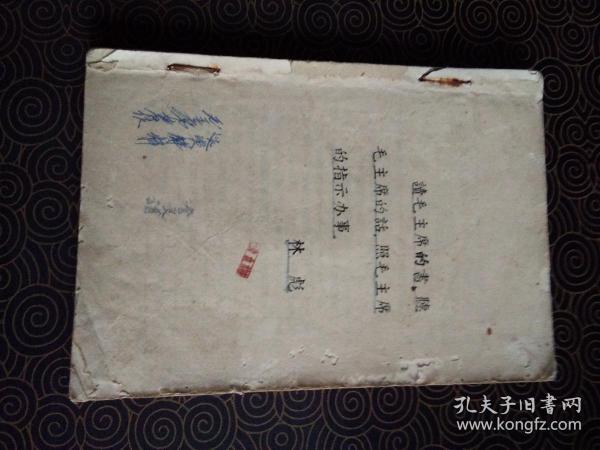 讀毛主席的書，聽
毛主席的話，照毛主席
的指示办事。
林彪
孔夫子旧書网
www.kongfz.com